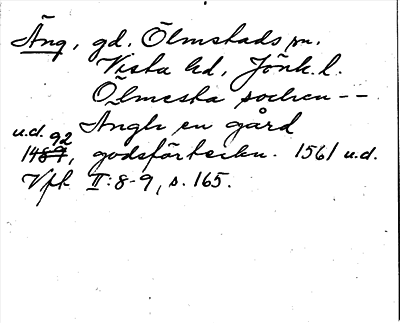 Äng, gd. Ölmstads sn.
Vista hd, Jönk. l.
Ölmesta sochen --
Ängh en gård
u.d. 92
1489, godsförteckn. 1561 u.d.
Vfk II:8-9, s. 165.